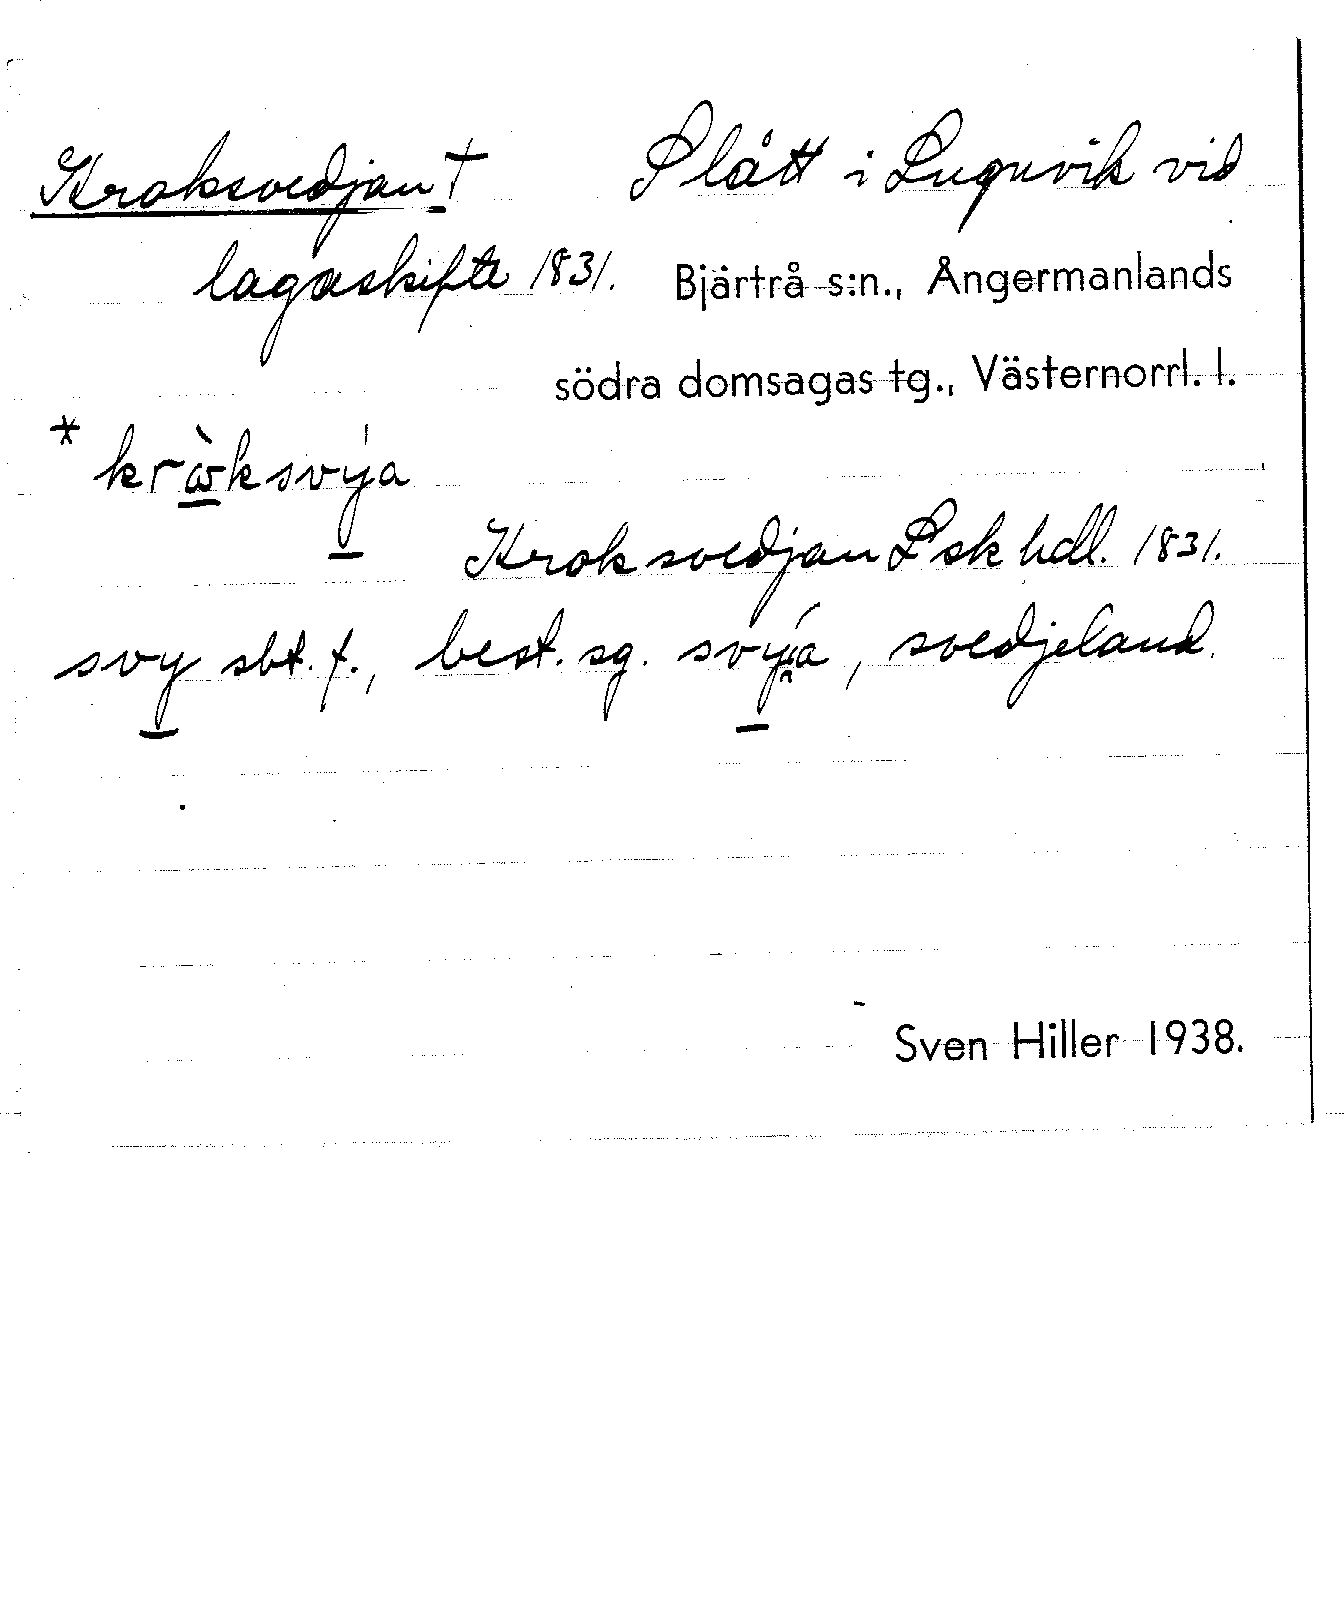 Kroksvedjan † Slått i Lugnvik vid
lagaskifte 1831. Bjärtrå s:n., Ångermanlands
södra domsagas tg., Västernorrl. l.
* krὼksvýa
Kroksvedjan Lsk hdl. 1831.
svy sbt. f., best. sg. svýa, svedjeland.
Sven Hiller 1938.